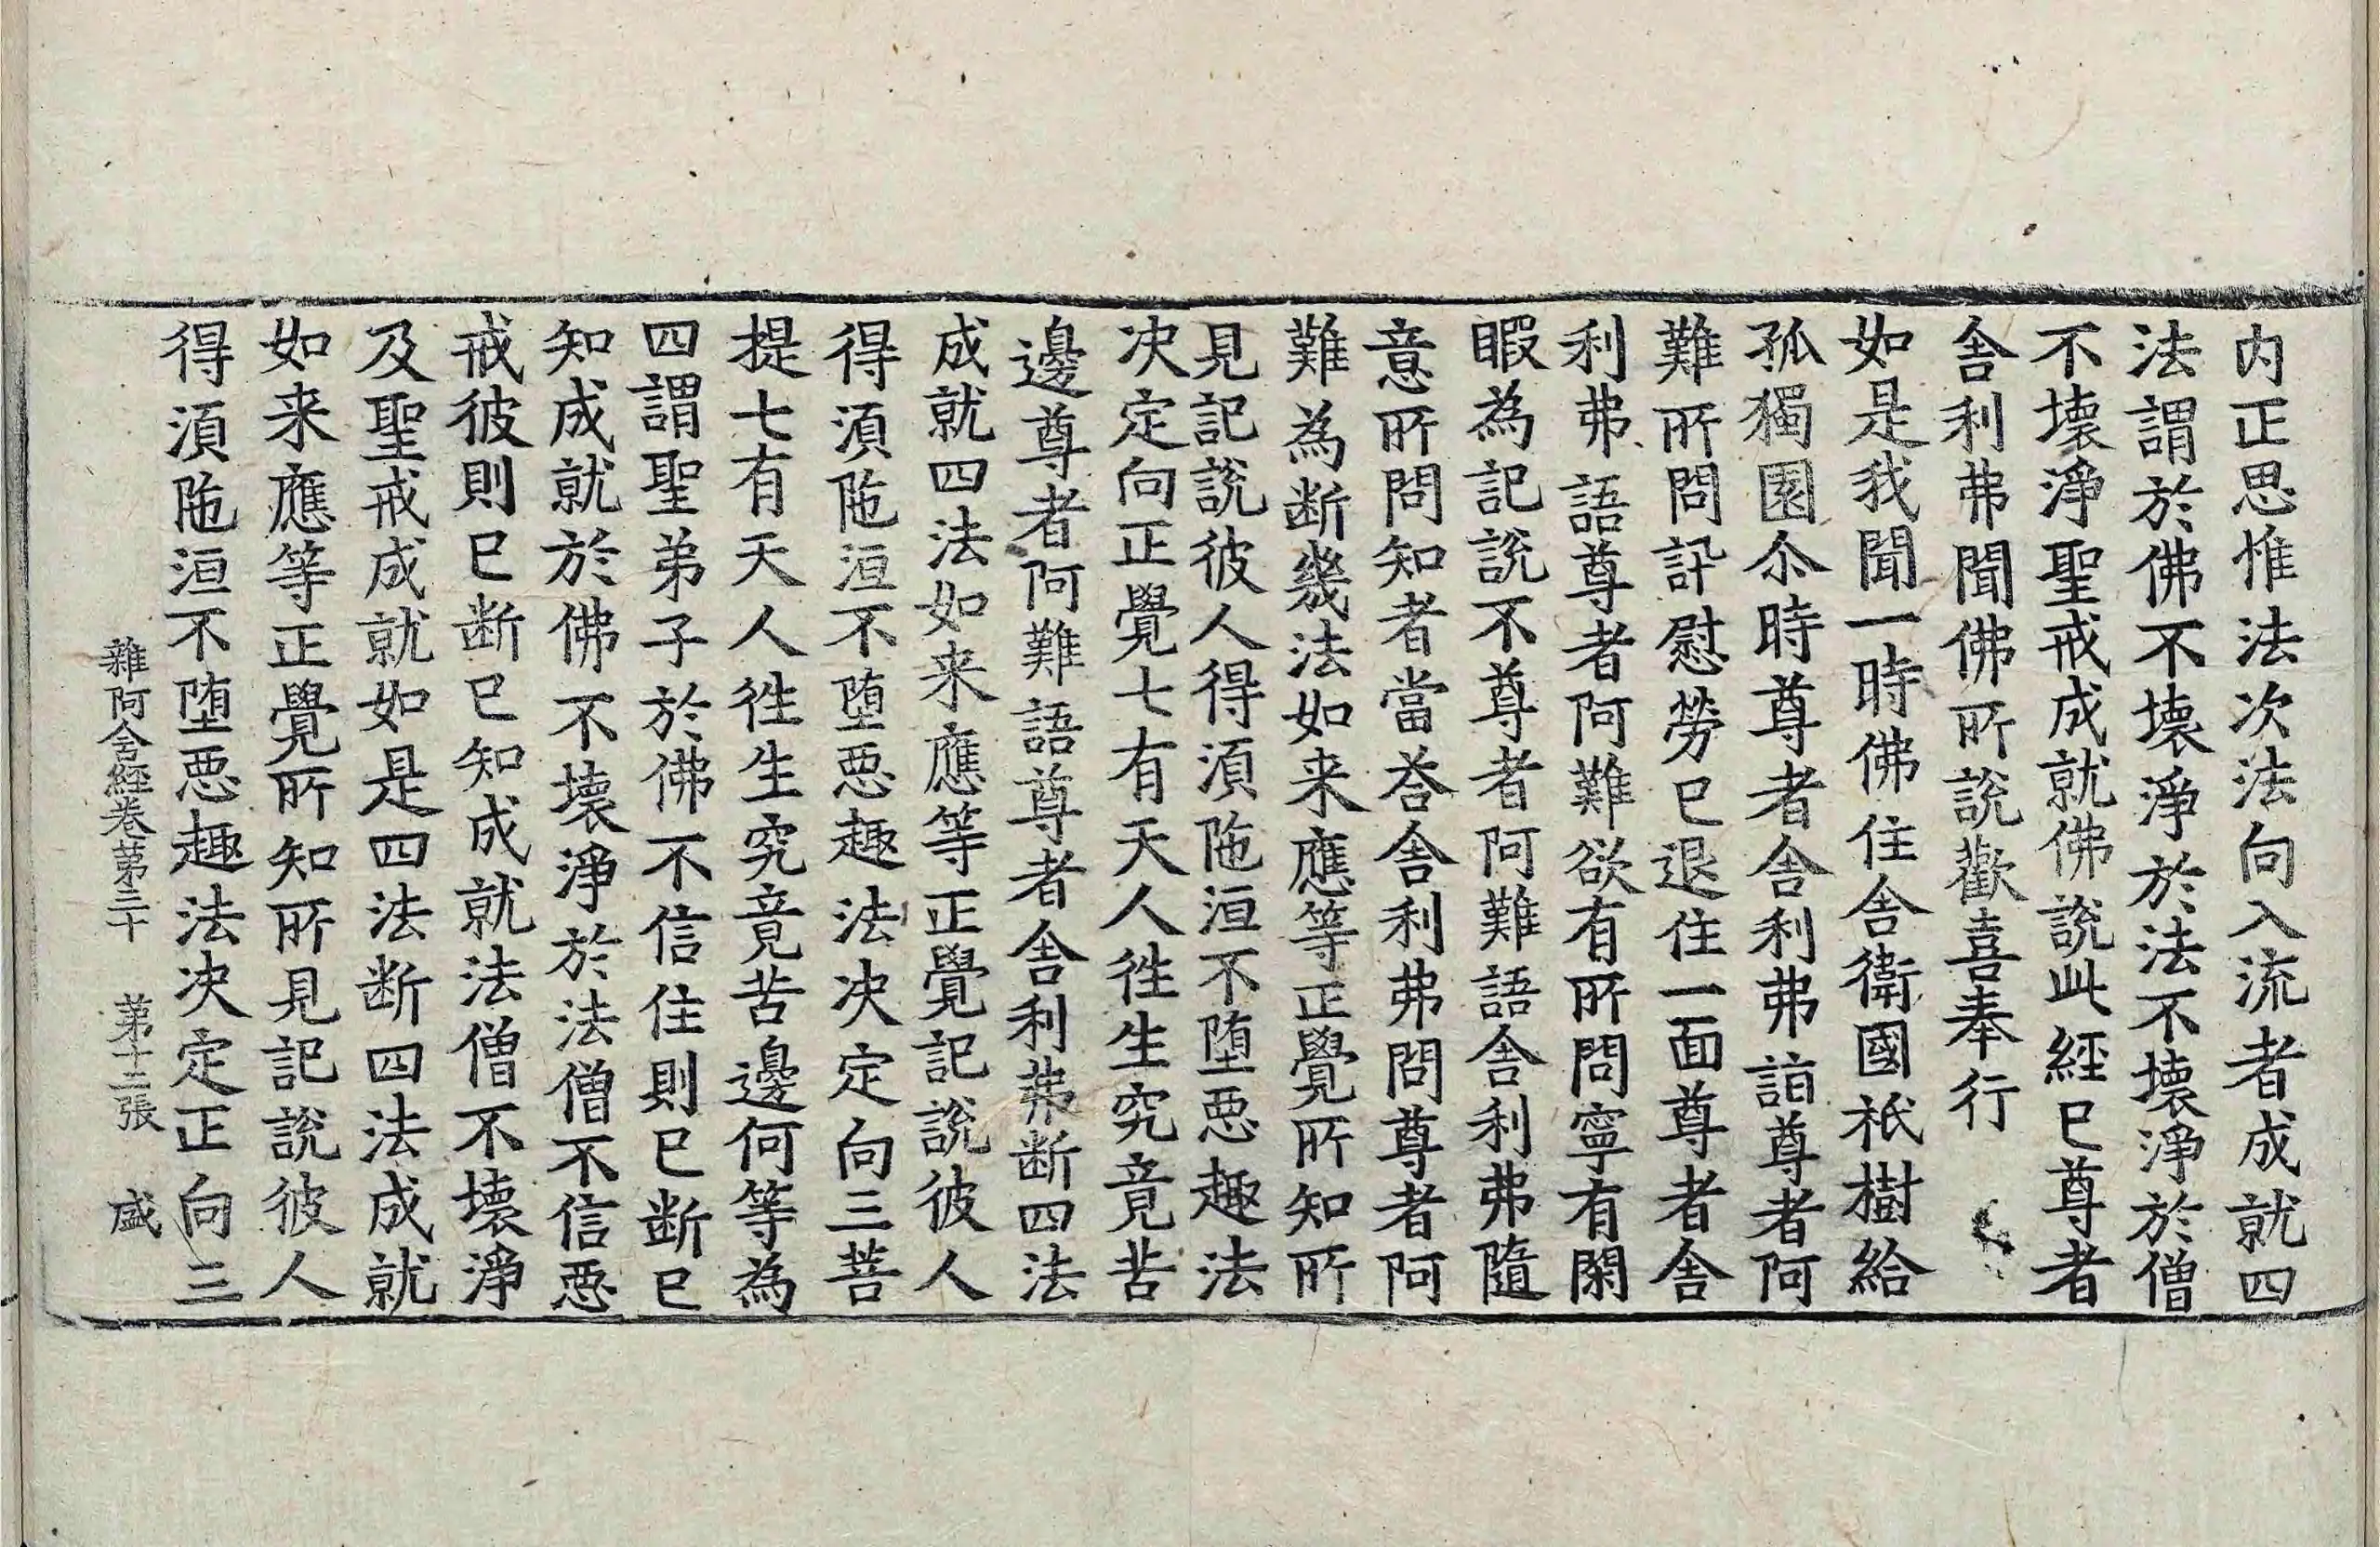 内正思惟法次法向入流者成就四
法謂於佛不壊淨於法不壊淨於僧
不壊淨聖戒成就佛說此經已尊者
舎利弗聞佛所說歡喜奉行
如是我聞一時佛住舎衛國祇樹給
孤獨園尒時尊者舎利弗詣尊者阿
難所問訊慰勞已退住一面尊者舎
利弗語尊者阿難欲有所問寧有閑
暇為記說不尊者阿難語舎利弗隨
意所問知者當荅舎利弗問尊者阿
難為断幾法如来應等正覺所知所
見記說彼人得湏陁洹不堕惡趣法
决定向正覺七有天人徃生究竟苦
邊尊者阿難語尊者舎利弗断四法
成就四法如来應等正覺記說彼人
得湏陁洹不堕惡趣法决定向三菩
提七有天人徃生究竟苦邊何等為
四謂聖弟子於佛不信住則已断已
知成就於佛不壊淨於法僧不信惡
戒彼則已断已知成就法僧不壊淨
及聖戒成就如是四法断四法成就
如来應等正覺所知所見記說彼人
得湏陁洹不堕惡趣法决定正向三
雜阿含經卷苐三十 苐十二張 盛